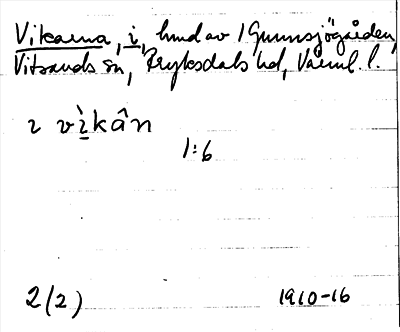 Vikarna, i, hmd av 1 Gunnsjögården,
Vitsands sn, Fryksdals hd, Värml. l.
i vìkân
1:6
2(2) 1910-16